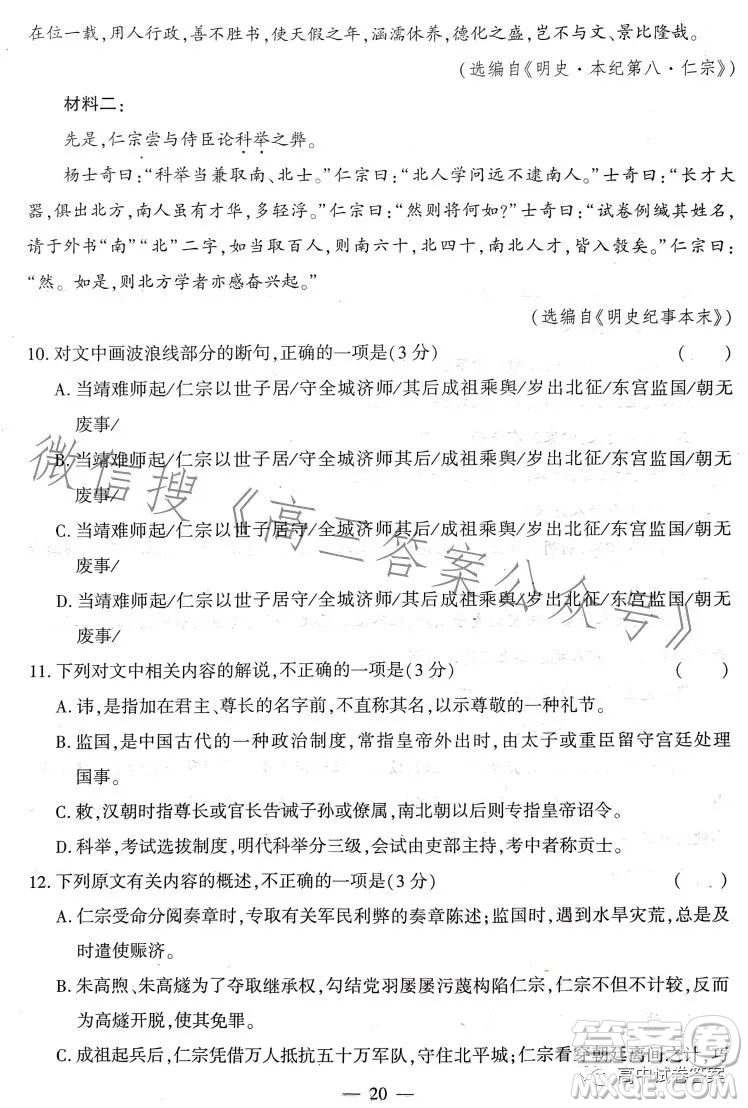 在位一载,用人行政,善不胜书,使天假之年,涵濡休养,德化之盛,岂不与文、景比隆哉。
(选编自《明史·本纪第八·仁宗》)
材料二:
先是,仁宗尝与侍臣论科举之弊。
杨士奇曰:“科举当兼取南、北士。”仁宗曰:“北人学问远不逮南人。”士奇曰:“长才大
器,俱出北方,南人虽有才华,多轻浮。”仁宗曰:“然则将何如?”士奇曰:“试卷例缄其姓名,
请于外书“南”“北”二字,如当取百人,则南六十,北四十,南北人才,皆入彀矣。”仁宗曰:
“然。如是,则北方学者亦感奋兴起。”
(选编自《明史纪事本末》)
10. 对文中画波浪线部分的断句,正确的一项是(3 分) ( )
A. 当靖难师起/仁宗以世子居/守全城济师/其后成祖乘舆/岁出北征/东宫监国/朝无
废事/
B. 当靖难师起/仁宗以世子居/守全城济师其后/成祖乘舆/岁出北征/东宫监国/朝无
废事/
C. 当靖难师起/仁宗以世子居守/全城济师其后/成祖乘舆/岁出北征/东宫监国/朝无
废事/
D. 当靖难师起/仁宗以世子居守/全城济师/其后成祖乘舆/岁出北征/东宫监国/朝无
废事/
11. 下列对文中相关内容的解说,不正确的一项是(3 分) ( )
A. 讳,是指加在君主、尊长的名字前,不直称其名,以示尊敬的一种礼节。
B. 监国,是中国古代的一种政治制度,常指皇帝外出时,由太子或重臣留守宫廷处理
国事。
C. 敕,汉朝时指尊长或官长告诫子孙或僚属,南北朝以后专指皇帝诏令。
D. 科举,考试选拔制度,明代科举分三级,会试由吏部主持,考中者称贡士。
12. 下列原文有关内容的概述,不正确的一项是(3 分) ( )
A. 仁宗受命分阅奏章时,专取有关军民利弊的奏章陈述;监国时,遇到水旱灾荒,总是及
时遣使赈济。
B. 朱高煦、朱高燧为了夺取继承权,勾结党羽屡屡污蔑构陷仁宗,仁宗不但不计较,反为
高燧开脱,使其免罪。
C. 成祖起兵后,仁宗凭借万人抵抗五十万军队,守住北平城;仁宗看穿朝廷离间之计,巧
— 20 —
微信搜《高三答案公众号》
答案圈
高中试卷答案
MXQE.COM